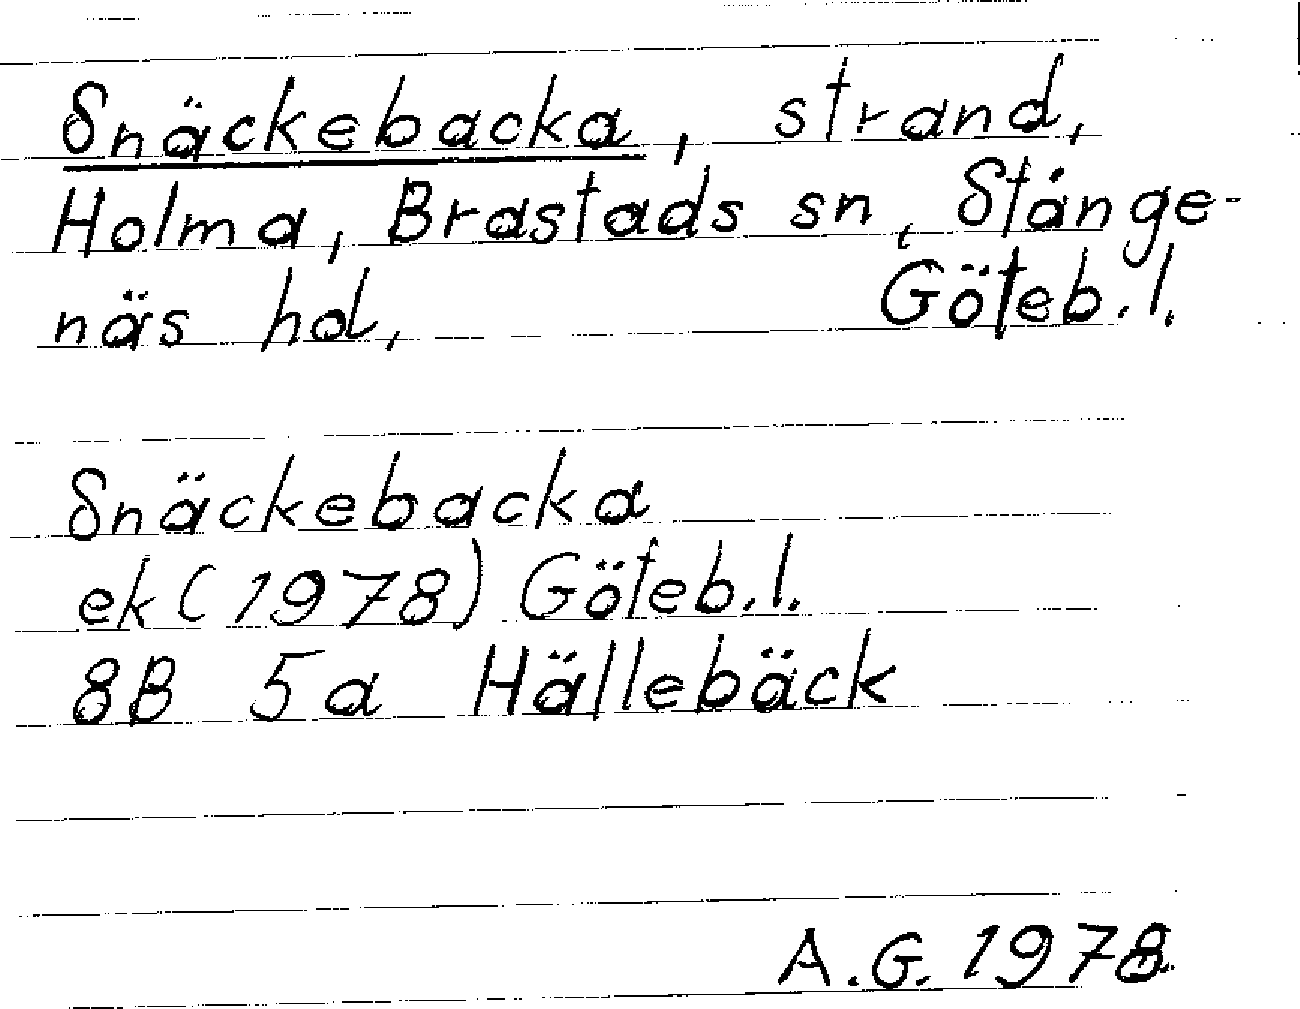 Snäckebacka, strand,
Holma, Brastads sn, Stånge-
näs hd, Göteb. l.
Snäckebacka
ek (1978) Göteb. l.
8B 5a Hällebäck
A.G. 1978